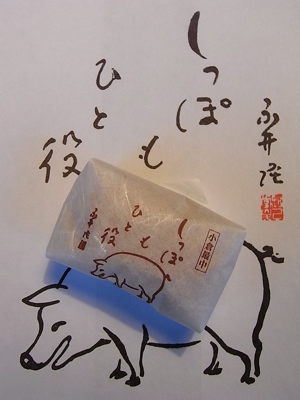 しっぽ
も
ひと
役
しっぽ
も
ひと
役
小倉最中